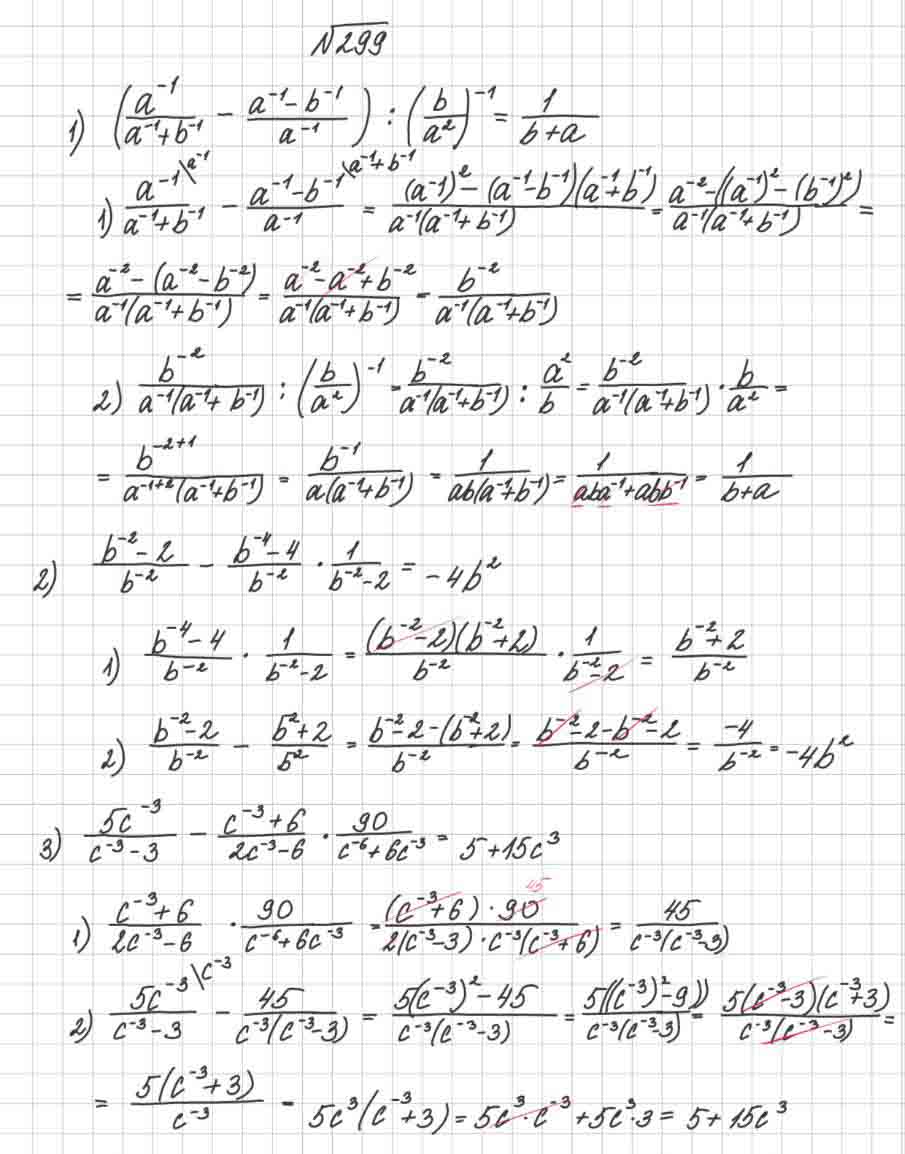 №299
1) (a⁻¹/(a⁻¹+b⁻¹) − (a⁻¹−b⁻¹)/a⁻¹) : (b/a²)⁻¹ = 1/(b+a)
1) a⁻¹/(a⁻¹+b⁻¹) \a⁻¹ − (a⁻¹−b⁻¹)/a⁻¹ \a⁻¹+b⁻¹ = ((a⁻¹)²−(a⁻¹−b⁻¹)(a⁻¹+b⁻¹))/(a⁻¹(a⁻¹+b⁻¹)) = (a⁻²−((a⁻¹)²−(b⁻¹)²))/(a⁻¹(a⁻¹+b⁻¹)) =
= (a⁻²−(a⁻²−b⁻²))/(a⁻¹(a⁻¹+b⁻¹)) = (a⁻²−a⁻²+b⁻²)/(a⁻¹(a⁻¹+b⁻¹)) = b⁻²/(a⁻¹(a⁻¹+b⁻¹))
2) b⁻²/(a⁻¹(a⁻¹+b⁻¹)) : (b/a²)⁻¹ = b⁻²/(a⁻¹(a⁻¹+b⁻¹)) : a²/b = b⁻²/(a⁻¹(a⁻¹+b⁻¹)) · b/a² =
= b⁻²⁺¹/(a⁻¹⁺²(a⁻¹+b⁻¹)) = b⁻¹/(a(a⁻¹+b⁻¹)) = 1/(ab(a⁻¹+b⁻¹)) = 1/(aba⁻¹+abb⁻¹) = 1/(b+a)
2) (b⁻²−2)/b⁻² − (b⁻⁴−4)/b⁻² · 1/(b⁻²−2) = −4b²
1) (b⁻⁴−4)/b⁻² · 1/(b⁻²−2) = ((b⁻²−2)(b⁻²+2))/b⁻² · 1/(b⁻²−2) = (b⁻²+2)/b⁻²
2) (b⁻²−2)/b⁻² − (b⁻²+2)/b⁻² = (b⁻²−2−(b⁻²+2))/b⁻² = (b⁻²−2−b⁻²−2)/b⁻² = −4/b⁻² = −4b²
3) 5c⁻³/(c⁻³−3) − (c⁻³+6)/(2c⁻³−6) · 90/(c⁻⁶+6c⁻³) = 5+15c³
1) (c⁻³+6)/(2c⁻³−6) · 90/(c⁻⁶+6c⁻³) = ((c⁻³+6)·90 45)/(2(c⁻³−3)·c⁻³(c⁻³+6)) = 45/(c⁻³(c⁻³−3))
2) 5c⁻³/(c⁻³−3) \c⁻³ − 45/(c⁻³(c⁻³−3)) = (5(c⁻³)²−45)/(c⁻³(c⁻³−3)) = 5((c⁻³)²−9))/(c⁻³(c⁻³−3)) = (5(c⁻³−3)(c⁻³+3))/(c⁻³(c⁻³−3)) =
= 5(c⁻³+3)/c⁻³ = 5c³(c⁻³+3) = 5c³·c⁻³+5c³·3 = 5+15c³